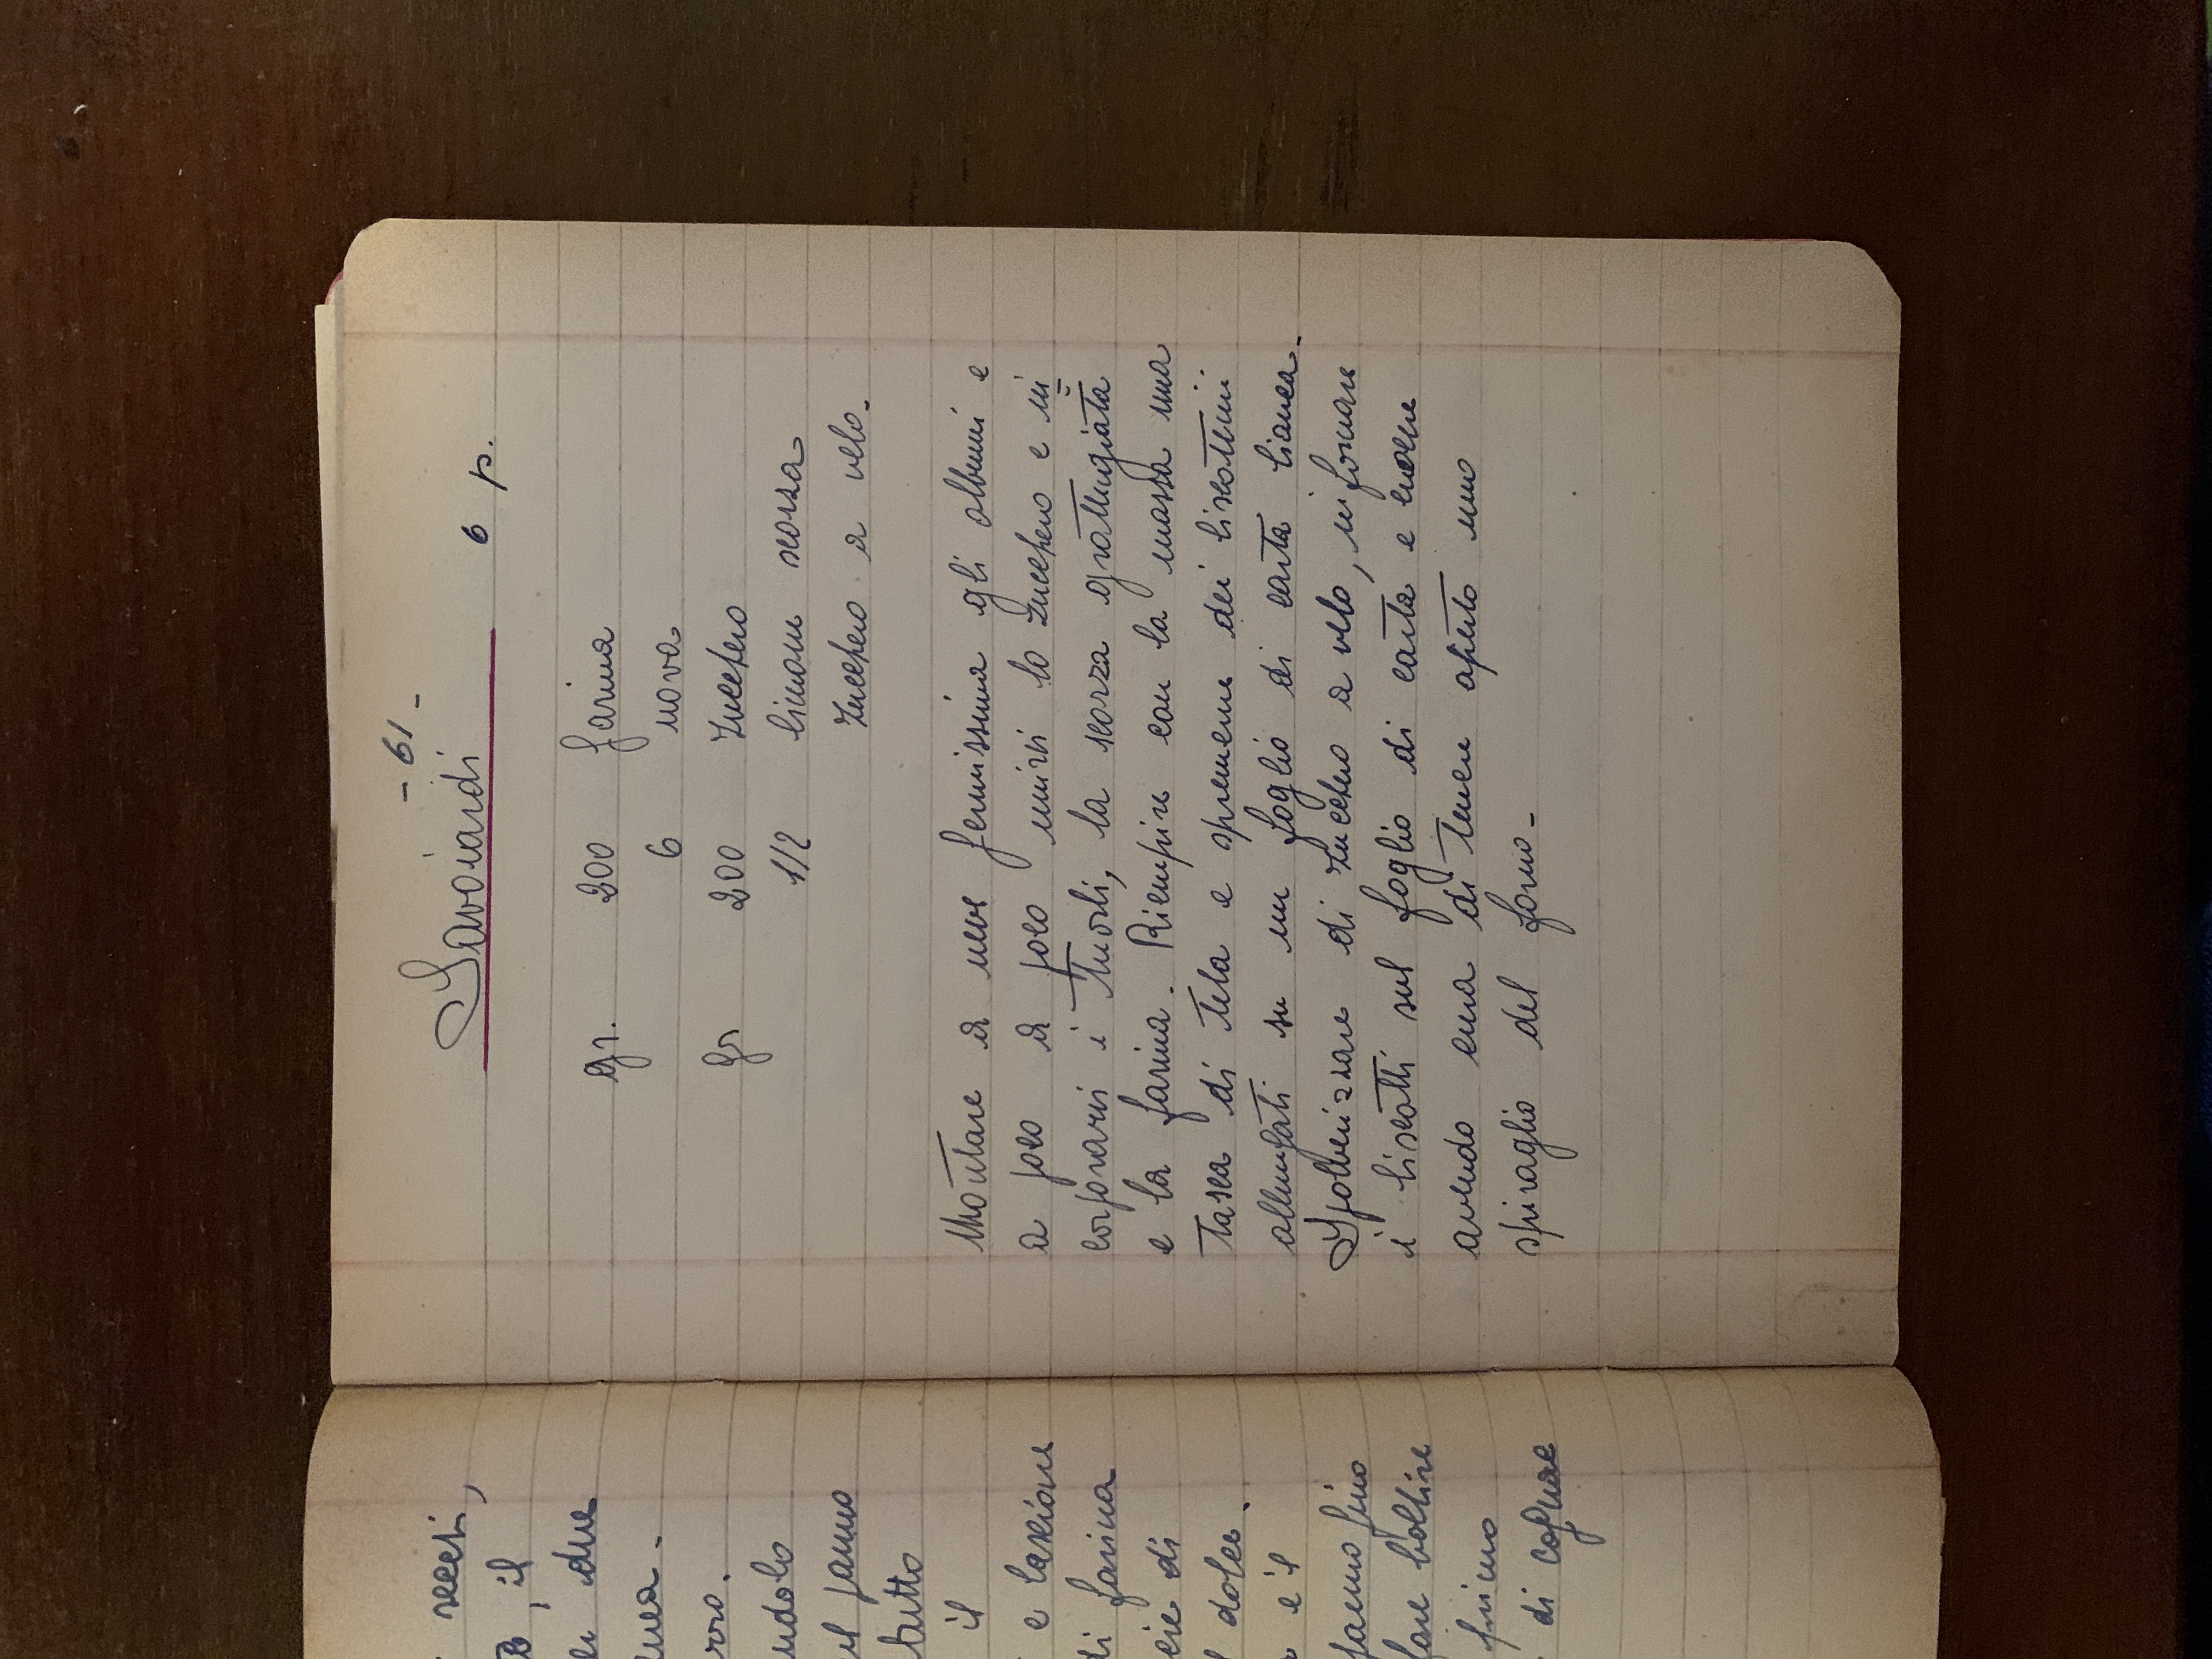 secchi,
, il
due
udolo
panno
tutto
il
e lasciare
di farina
di
dolce.
e il
panno fino
fare bollire
primo
di cognac
- 61 -
Savoiardi 6 p.
gr. 200 farina
6 uova
gr 200 zucchero
1/2 limone scorza
zucchero a velo.
Montare a neve fermissima gli albumi e
a poco a poco unirvi lo zucchero e in=
corporarvi i tuorli, la scorza grattugiata
e la farina. Riempire con la massa una
tasca di tela e spremerne dei biscottini
allungati su un foglio di carta bianca.
Spolverizzare di zucchero a velo, infornare
i biscotti sul foglio di carta e cuocere
avendo cura di tenere aperto uno
spiraglio del forno-